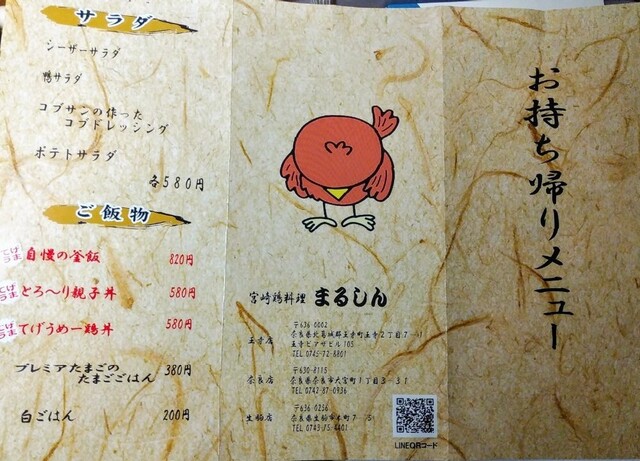 サラダ
シーザーサラダ
鴨サラダ
コブサンの作った
コブドレッシング
ポテトサラダ
各580円
ご飯物
自慢の釜飯 820円
とろ〜り親子丼 580円
てげうめー鶏丼 580円
プレミアたまごの
たまごごはん 380円
白ごはん 200円
宮崎鶏料理 まるしん
王寺店
〒636-0002
奈良県北葛城郡王寺町王寺2丁目7-
王寺ピアサビル105
TEL 0745-72-8801
奈良店
〒630-8115
奈良県奈良市大宮町1丁目3-31
TEL 0742-87-0936
生駒店
〒630-0256
奈良県生駒市本町7-
TEL 0743-75-4401
LINEQRコード
お持ち帰りメニュー